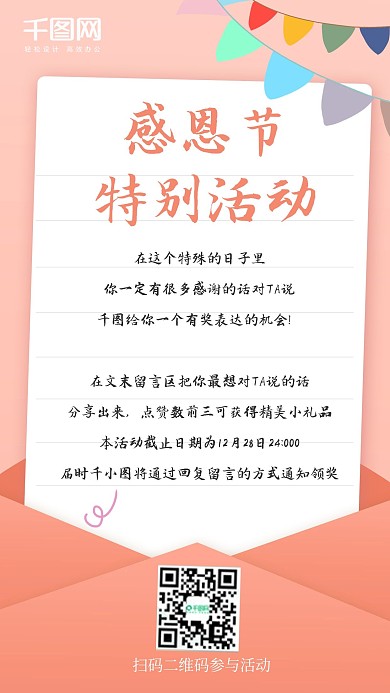 千图网
轻松设计 高效办公
感恩节
特别活动
在这个特殊的日子里
你一定有很多感谢的话对TA说
千图给你一个有奖表达的机会!
在文末留言区把你最想对TA说的话
分享出来，点赞数前三可获得精美小礼品
本活动截止日期为12月28日24:000
届时千小图将通过回复留言的方式通知领奖
千图网
扫码二维码参与活动